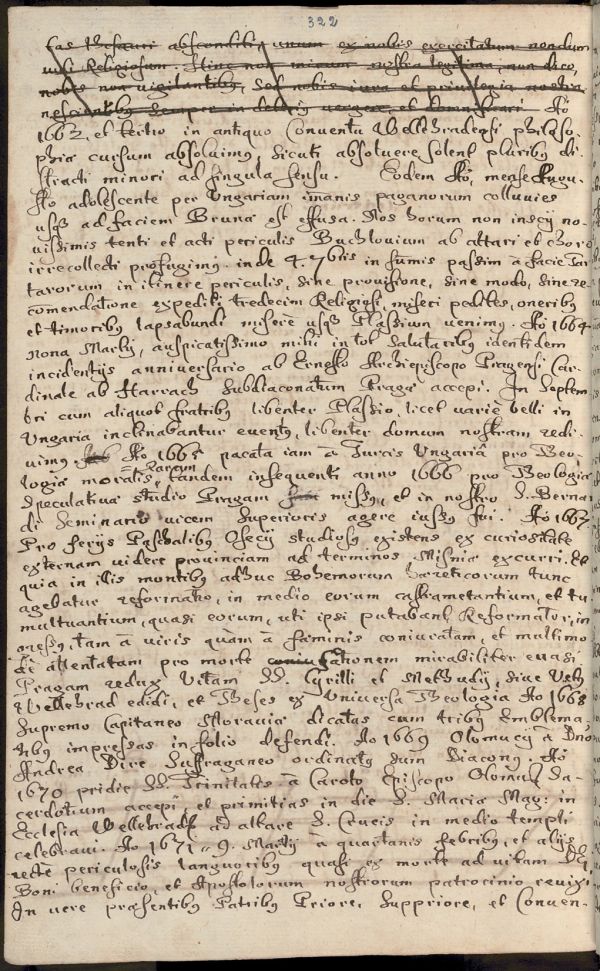 322
cas thesauri absconditi, unum ex nobis exercitatum nondum
nisi Religiosum. Hinc non mirum nostra legitima, nun dico,
nobis non vigilantibꝰ, sed nobis iura et privilegia nostra
nescientibꝰ semper in detriꝰ vergere, et Aō
1662, et tertio in antiquo Conventu Wellehradensi philoso-
phiæ cursum absolvimꝰ, sicuti absolvere solent pluribꝰ di-
stracti minori ad singula sensu. Eodem Aō, mense Augu-
sto adolescente per Ungariam imanis paganorum colluvies
usqꝫ ad faciem Brunæ est effusa. Nos horum non inscij no-
vissimis tenti et acti periculis Buchlovium ab altari et choro
irrecollecti profugimꝰ. inde 4. 7bris in sumis passim a facie Tar
tarorum in itinere periculis, sine provisione, sine modo, sine re-
cōmendatione expediti tredecim Religiosi, miseri pedites, oneribꝰ
et timoribꝰ lapsabundi miserè usqꝫ Plassium venimꝰ. Aō 1664
nona Martij, auspicatissimo mihi in tot salutaribꝰ identidem
incidentijs anniversario ab Ernesto Archiepiscopo Pragensi Car-
dinale ab Harrach Subdiaconatum Pragæ accepi. In Septem-
bri cum aliquot fratribꝰ libenter Plassio, licet variè belli in
Ungaria inclinabantur eventꝰ, libenter domum nostram redi-
vimꝰ Aō 1665 pacata iam a Turcis Ungariâ pro Theo-
logiæ moralis, tandem insequenti anno 1666 pro Theologiæ
speculativæ studio Pragam missꝰ, et in nostro S. Bernar
di Seminario vicem Superioris agere iussꝰ fui. Aō 1667
Pro ferijs Paschalibꝰ Ossecij studiosꝰ existens ex curiositate
externam videre provinciam ad terminos Misniæ excurri. Et
quia in illis montibꝰ adhuc Bohemorum hæreticorum tunc
agebatur reformatio, in medio eorum castrametantium, et tu-
multuantium, quasi eorum, uti ipsi putabant, Reformator, in
gressꝰ, tam à viris quàm à fæminis coniuratam, et multimo
dè attentatam pro morte mirabiliter evasi
Pragam redux Vitam SS. Cyrilli et Methudij, sive Vetꝰ
Wellehrad edidi, et Theses ex Universa Theologia Aō 1668
Supremo Capitaneo Moraviæ dicatas cum tribꝰ Emblema-
tibꝰ impressas in folio defendi. Aō 1669 Olomucij à Dno
Andrea Dire Suffraganeo ordinatꝰ sum Diaconꝰ. Aō
1670 pridie SS. Trinitatis à Carolo Episcopo Olomuc. Sa-
cerdotium accepi, et primitias in die S. Mariæ Mag: in
Ecclesia Wellehradꝭ ad altare S. Crucis in medio templi
celebravi. Ao 1671 9. Martij à quartanis febribꝰ, et alijs
recte periculosis languoribꝰ quasi ex morte ad vitam DEI
Boni beneficio, et Apostolorum nostrorum patrocinio revixi
In vere præsentibꝰ Patribꝰ Priore, Suppriore, et Conven-